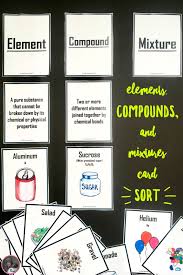 Element
Compound
Mixture
A pure substance that
cannot be broken down by its
chemical or physical
properties
Two or more
different elements
joined together by
chemical bonds
elements,
COMPOUNDS,
and
mixtures
card
SORT
Aluminum
Sucrose
SUGAR
Salad
Helium